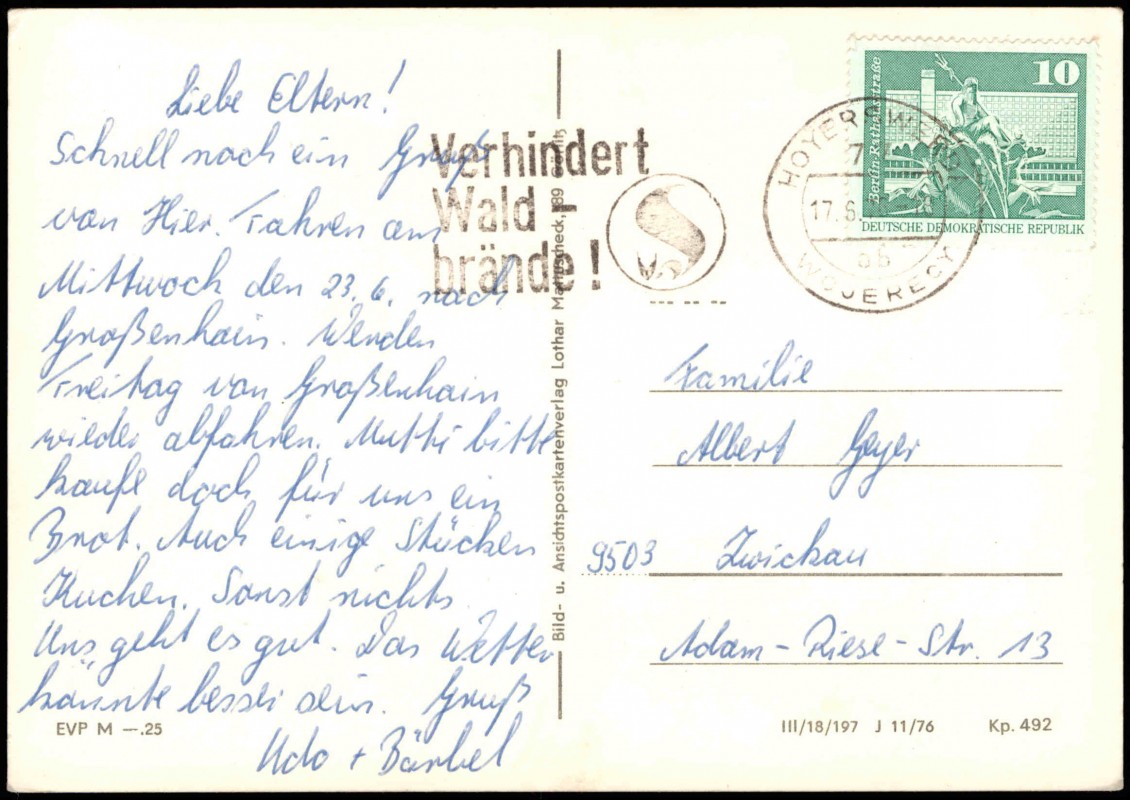 Liebe Eltern!
Schnell noch ein Gruß
von Hier. Fahren am
Mittwoch den 23.6. nach
Großenhain. Werden
Freitag von Großenhain
wieder abfahren. Mutti bitte
kaufe doch für uns ein
Brot. Auch einige Stücken
Kuchen. Sonst nichts
Uns geht es gut. Das Wetter
könnte besser sein. Gruß
Udo + Bärbel
EVP M —.25
Verhindert
Wald-
brände!
Bild- u. Ansichtspostkartenverlag Lothar 89
10
Berlin-Rathausstraße
DEUTSCHE DEMOKRATISCHE REPUBLIK
HOYERSWERDA
17.6.
WOJERECY
Familie
Albert Geyer
9503 Zwickau
Adam-Riese-Str. 13
III/18/197 J 11/76 Kp. 492